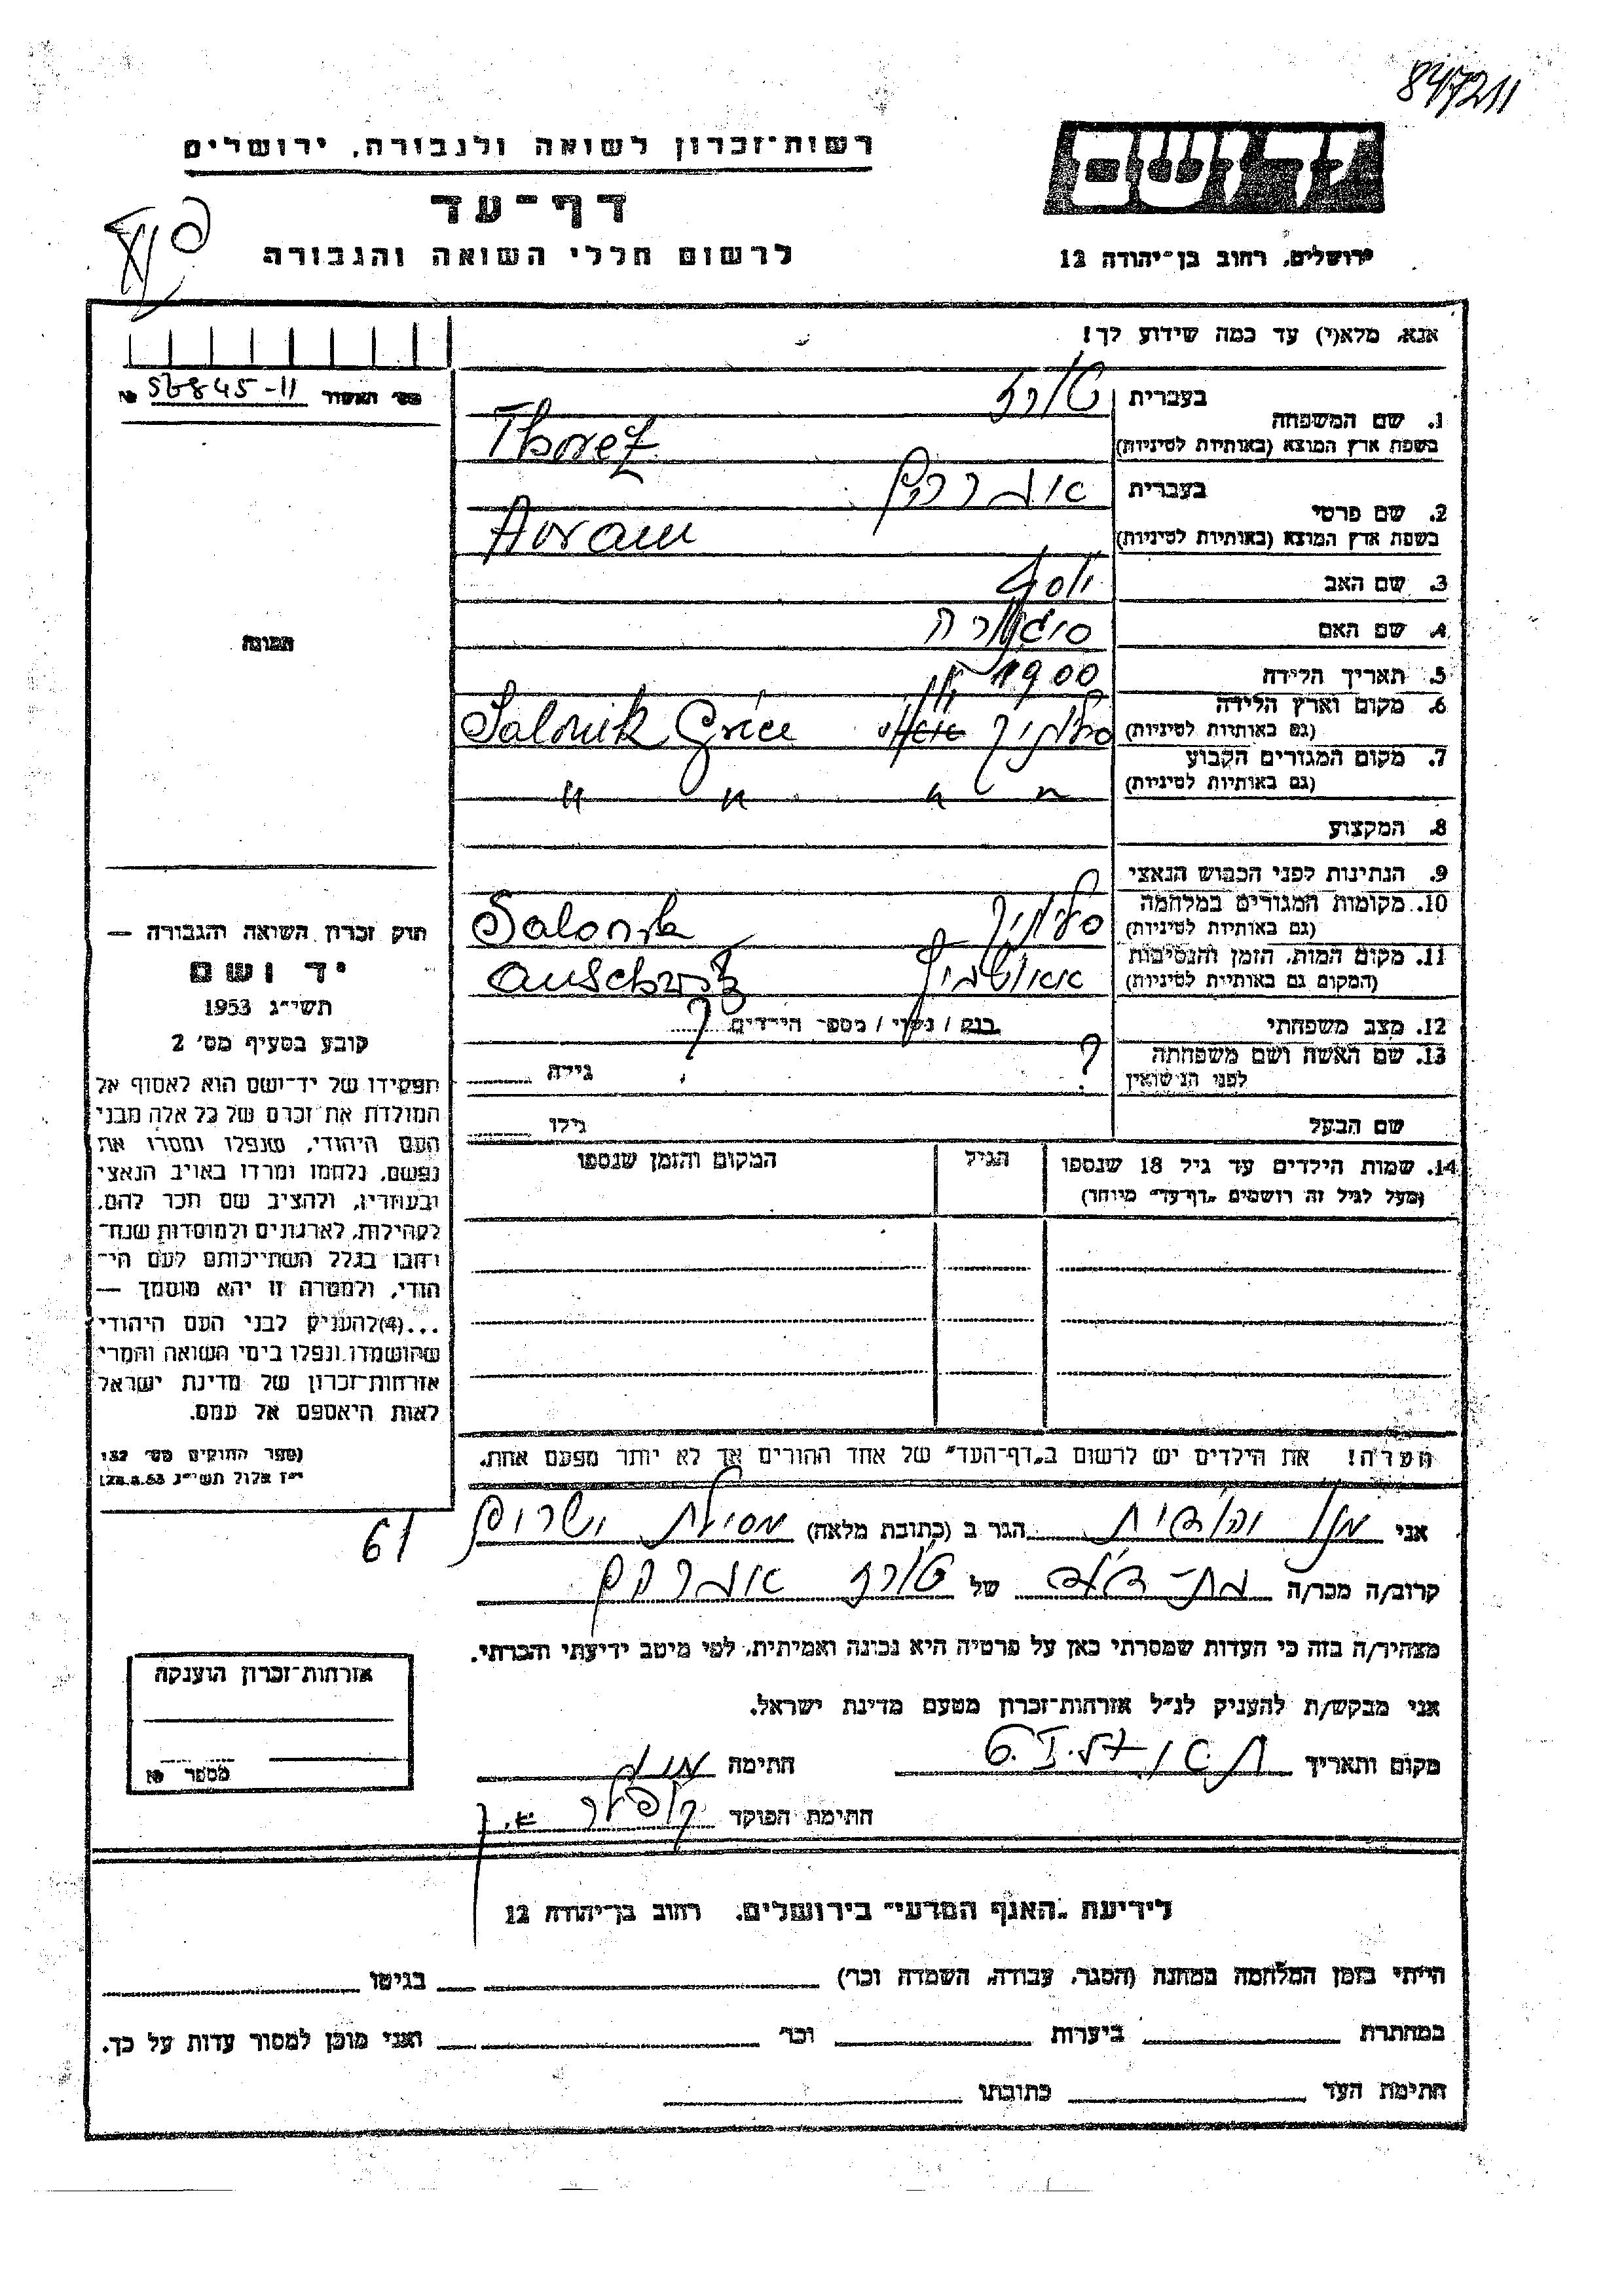 847211
רשות־זכרון לשואה ולגבורה, ירושלים
יד ושם
דף־עד
לרשום חללי השואה והגבורה
ירושלים, רחוב בן־יהודה 12
אנא, מלא(י) עד כמה שידוע לך!
מס׳ האשור № 56845-11
1. שם המשפחה בעברית טורז
בשפת ארץ המוצא (באותיות לטיניות) Thorez
2. שם פרטי בעברית אברהם
בשפת ארץ המוצא (באותיות לטיניות) Avram
3. שם האב יוסף
4. שם האם
5. תאריך הלידה 1900
6. מקום וארץ הלידה (גם באותיות לטיניות) סלוניקי Salonik Grèce
7. מקום המגורים הקבוע (גם באותיות לטיניות) " " " "
8. המקצוע
9. הנתינות לפני הכבוש הנאצי
10. מקומות המגורים במלחמה (גם באותיות לטיניות) סלוניק Salonik
11. מקום המות, הזמן והנסיבות (המקום גם באותיות לטיניות) אאושוויץ Auschwitz
12. מצב משפחתי רווק / נשוי / מספר הילדים ?
13. שם האשה ושם משפחתה לפני הנישואין ? גילה
שם הבעל גילו
14. שמות הילדים עד גיל 18 שנספו הגיל המקום והזמן שנספו
(מעל לגיל זה רושמים "דף־עד" מיוחד)
תמונה
חוק זכרון השואה והגבורה —
יד ושם
תשי״ג 1953
קובע בסעיף מס׳ 2
תפקידו של יד־ושם הוא לאסוף אל
המולדת את זכרם של כל אלה מבני
העם היהודי, שנפלו ומסרו את
נפשם, נלחמו ומרדו באויב הנאצי
ובעוזריו, ולהציב שם וזכר להם,
לקהילות, לארגונים ולמוסדות שנח־
רבו בגלל השתייכותם לעם הי־
הודי, ולמטרה זו יהא מוסמך —
...(4) להעניק לבני העם היהודי
שהושמדו ונפלו בימי השואה והמרי
אזרחות־זכרון של מדינת ישראל
לאות היאספם אל עמם.
(ספר החוקים מס׳ 132
י״ז אלול תשי״ג 28.8.53)
הערה! את הילדים יש לרשום ב"דף־העד" של אחד ההורים אך לא יותר מפעם אחת.
61
אני יהודית הגר ב (כתובת מלאה) מסילת ישרים
קרוב/ה מכר/ה בת־דוד של טורז אברהם
מצהיר/ה בזה כי העדות שמסרתי כאן על פרטיה היא נכונה ואמיתית, לפי מיטב ידיעתי והכרתי.
אני מבקש/ת להעניק לנ״ל אזרחות־זכרון מטעם מדינת ישראל.
מקום ותאריך חתימה
חתימת הפוקד
אזרחות־זכרון הוענקה
מספר №
לידיעת "האגף המדעי" בירושלים, רחוב בן־יהודה 12
הייתי בזמן המלחמה במחנה (הסגר, עבודה, השמדה וכר׳) בגיטו
במחתרת ביערות וכר׳ ואני מוכן למסור עדות על כך.
חתימת העד כתובתו